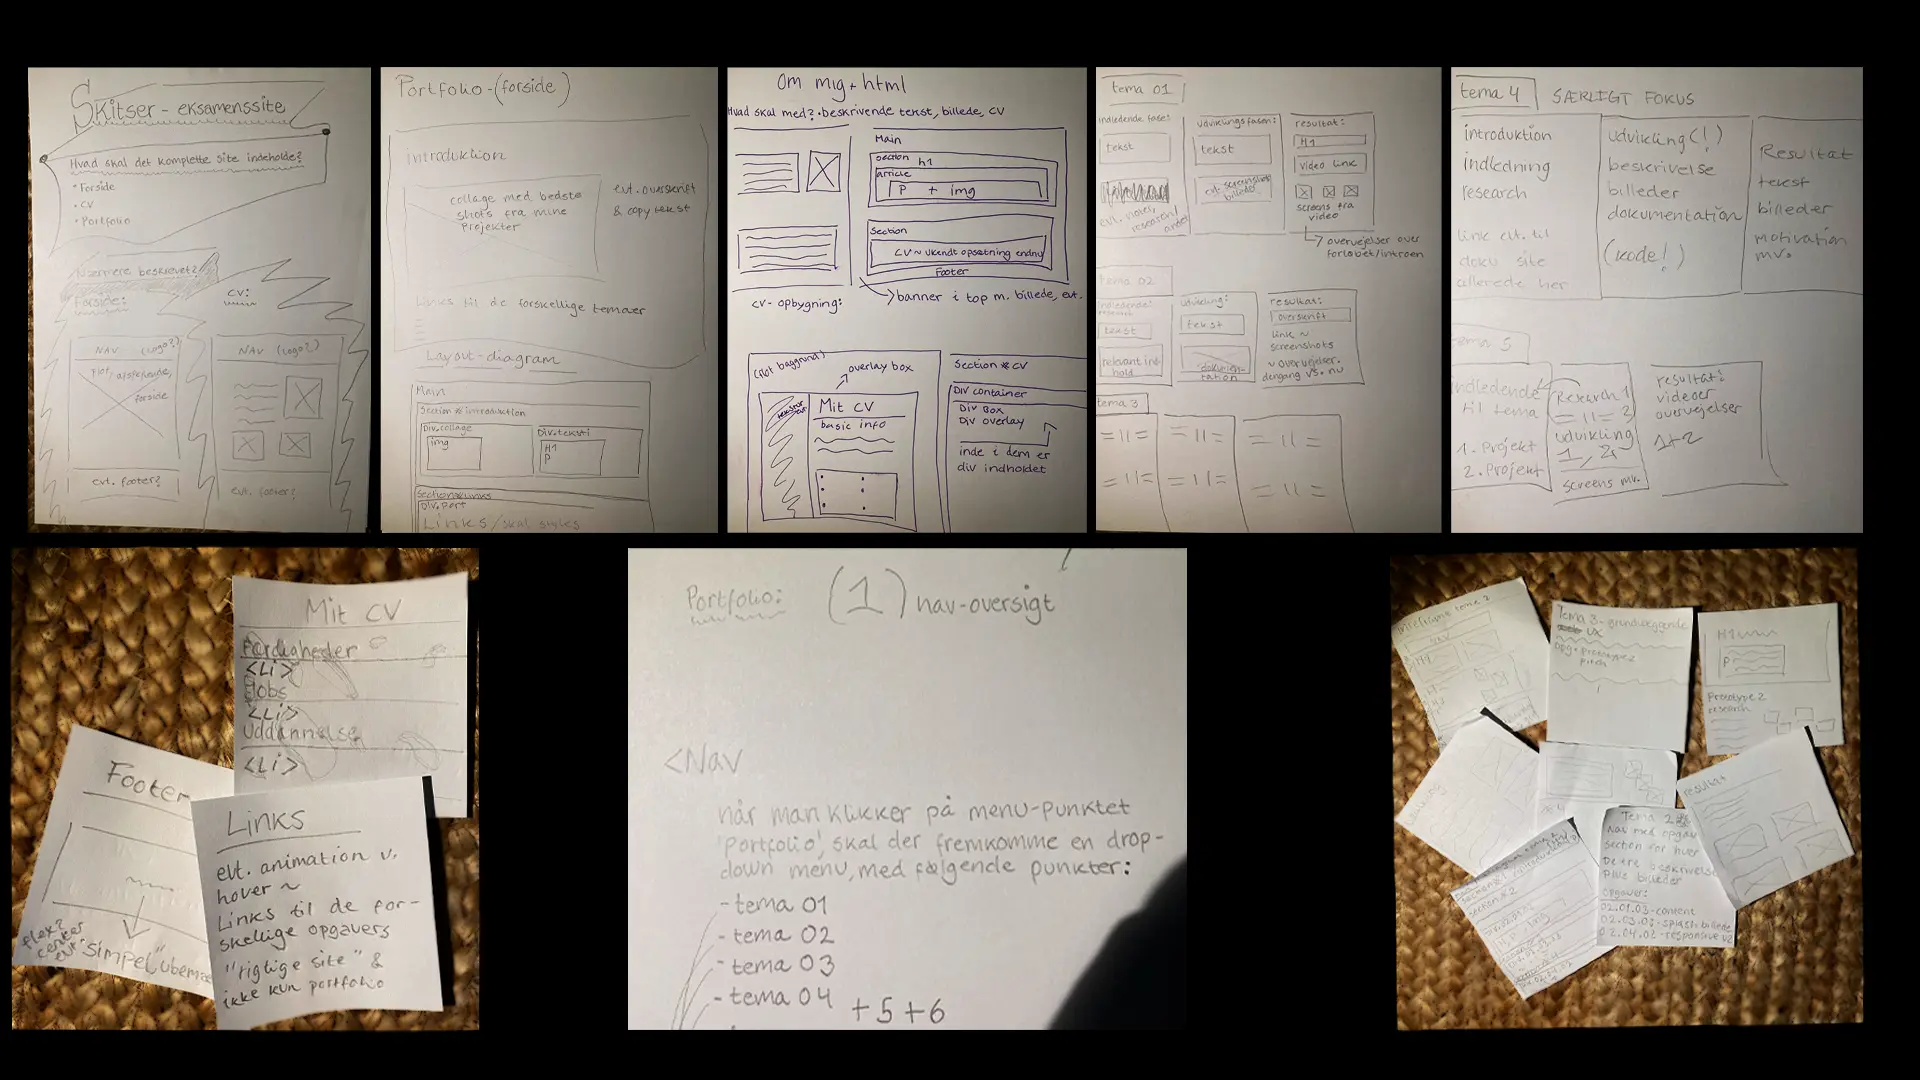 Skitser - eksamenssite
Hvad skal det komplette site indeholde?
• Forside
• CV
• Portfolio
Nærmere beskrevet?
Forside:
CV:
NAV (Logo?)
forside
evt. footer?
NAV (Logo?)
evt. footer?
Portfolio - (forside)
introduktion
collage med bedste
shots fra mine
projekter
evt. overskrift
& copy tekst
Links til de forskellige temaer
Layout-diagram
Main
Section # introduktion
Div.collage
img
Div.tekst1
H1
P
Section # Links
Div.port
Links/skal styles
Om mig + html
Hvad skal med? • beskrivende tekst, billede, CV
Main
section h1
article
P + img
Section
CV ~ ukendt opsætning endnu
Footer
banner i top m. billede, evt.
CV - opbygning:
(flot baggrund)
overlay box
Mit CV
basic info
Section # CV
Div container
Div Box
Div overlay
inde i dem er
div indholdet
tema 01
indledende fase:
tekst
evt. noter,
research/
andet
udviklingsfasen:
tekst
evt. screenshots
billeder
resultat:
H1
video link
screens fra
video
overvejelser over
forløbet/introen
tema 02
tekst
relevant ind
hold
udvikling:
tekst
dokumen-
tation
resultat:
overskrift
link ~
screenshots
~ overvejelser.
dengang vs. nu
tema 3
= 11 = = 11 = = 11 =
= 11 = = 11 = = 11 =
tema 4 SÆRLIGT FOKUS
introduktion
indledning
research
link evt. til
doku site
allerede her
udvikling(!)
beskrivelse
billeder
dokumentation
(kode!)
Resultat
tekst
billeder
motivation
mv.
tema 5
indledende
til tema
1. Projekt
2. Projekt
Research 1
= 11 = 2
udvikling
1, 2
screens mv.
resultat:
videoer
overvejelser
1+2
Mit CV
Færdigheder
<Li>
Jobs
<Li>
Uddannelse
<Li>
Footer
flex?
center
evt.
"simpel"
Links
evt. animation v.
hover ~
Links til de for-
skellige opgavers
"rigtige site" &
ikke kun portfolio
Portfolio: (1) nav-oversigt
<Nav
når man klikker på menu-punktet
'Portfolio', skal der fremkomme en drop-
down menu, med følgende punkter:
- tema 01
- tema 02
- tema 03
- tema 04 +5 +6
Wireframe tema 2
Nav
H1
Tema 3 - grundlæggende
UX
Opg. prototype 2
pitch
H1
P
Prototype 2
research
resultat
Tema 2
Nav med opgav
section for hver
Plus billeder
Opgaver:
02.01.03-content
02.03.03-splash billede
02.04.02-responsive v2